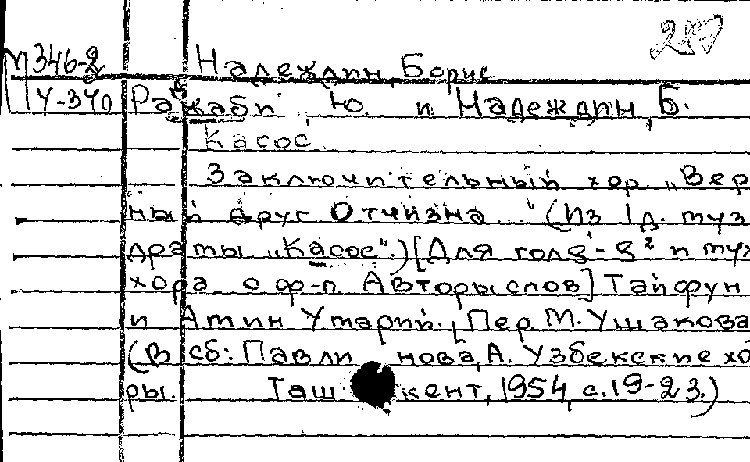 257
М346-2 Надеждин, Борис
П4-340 Ражаби, Ю. и Надеждин, Б.
Касос.
Заключительный хор „Вер
ный друг Отчизна..." (Из 1 д. муз
драмы „Касос".) [Для гол
хора с ф-п. Авторы слов] Тайфун
и Амин Умарий. [Пер. М. Ушакова
(В сб: Павли нова, А. Узбекские хо
ры. Таш кент, 1954, с. 19-23.)